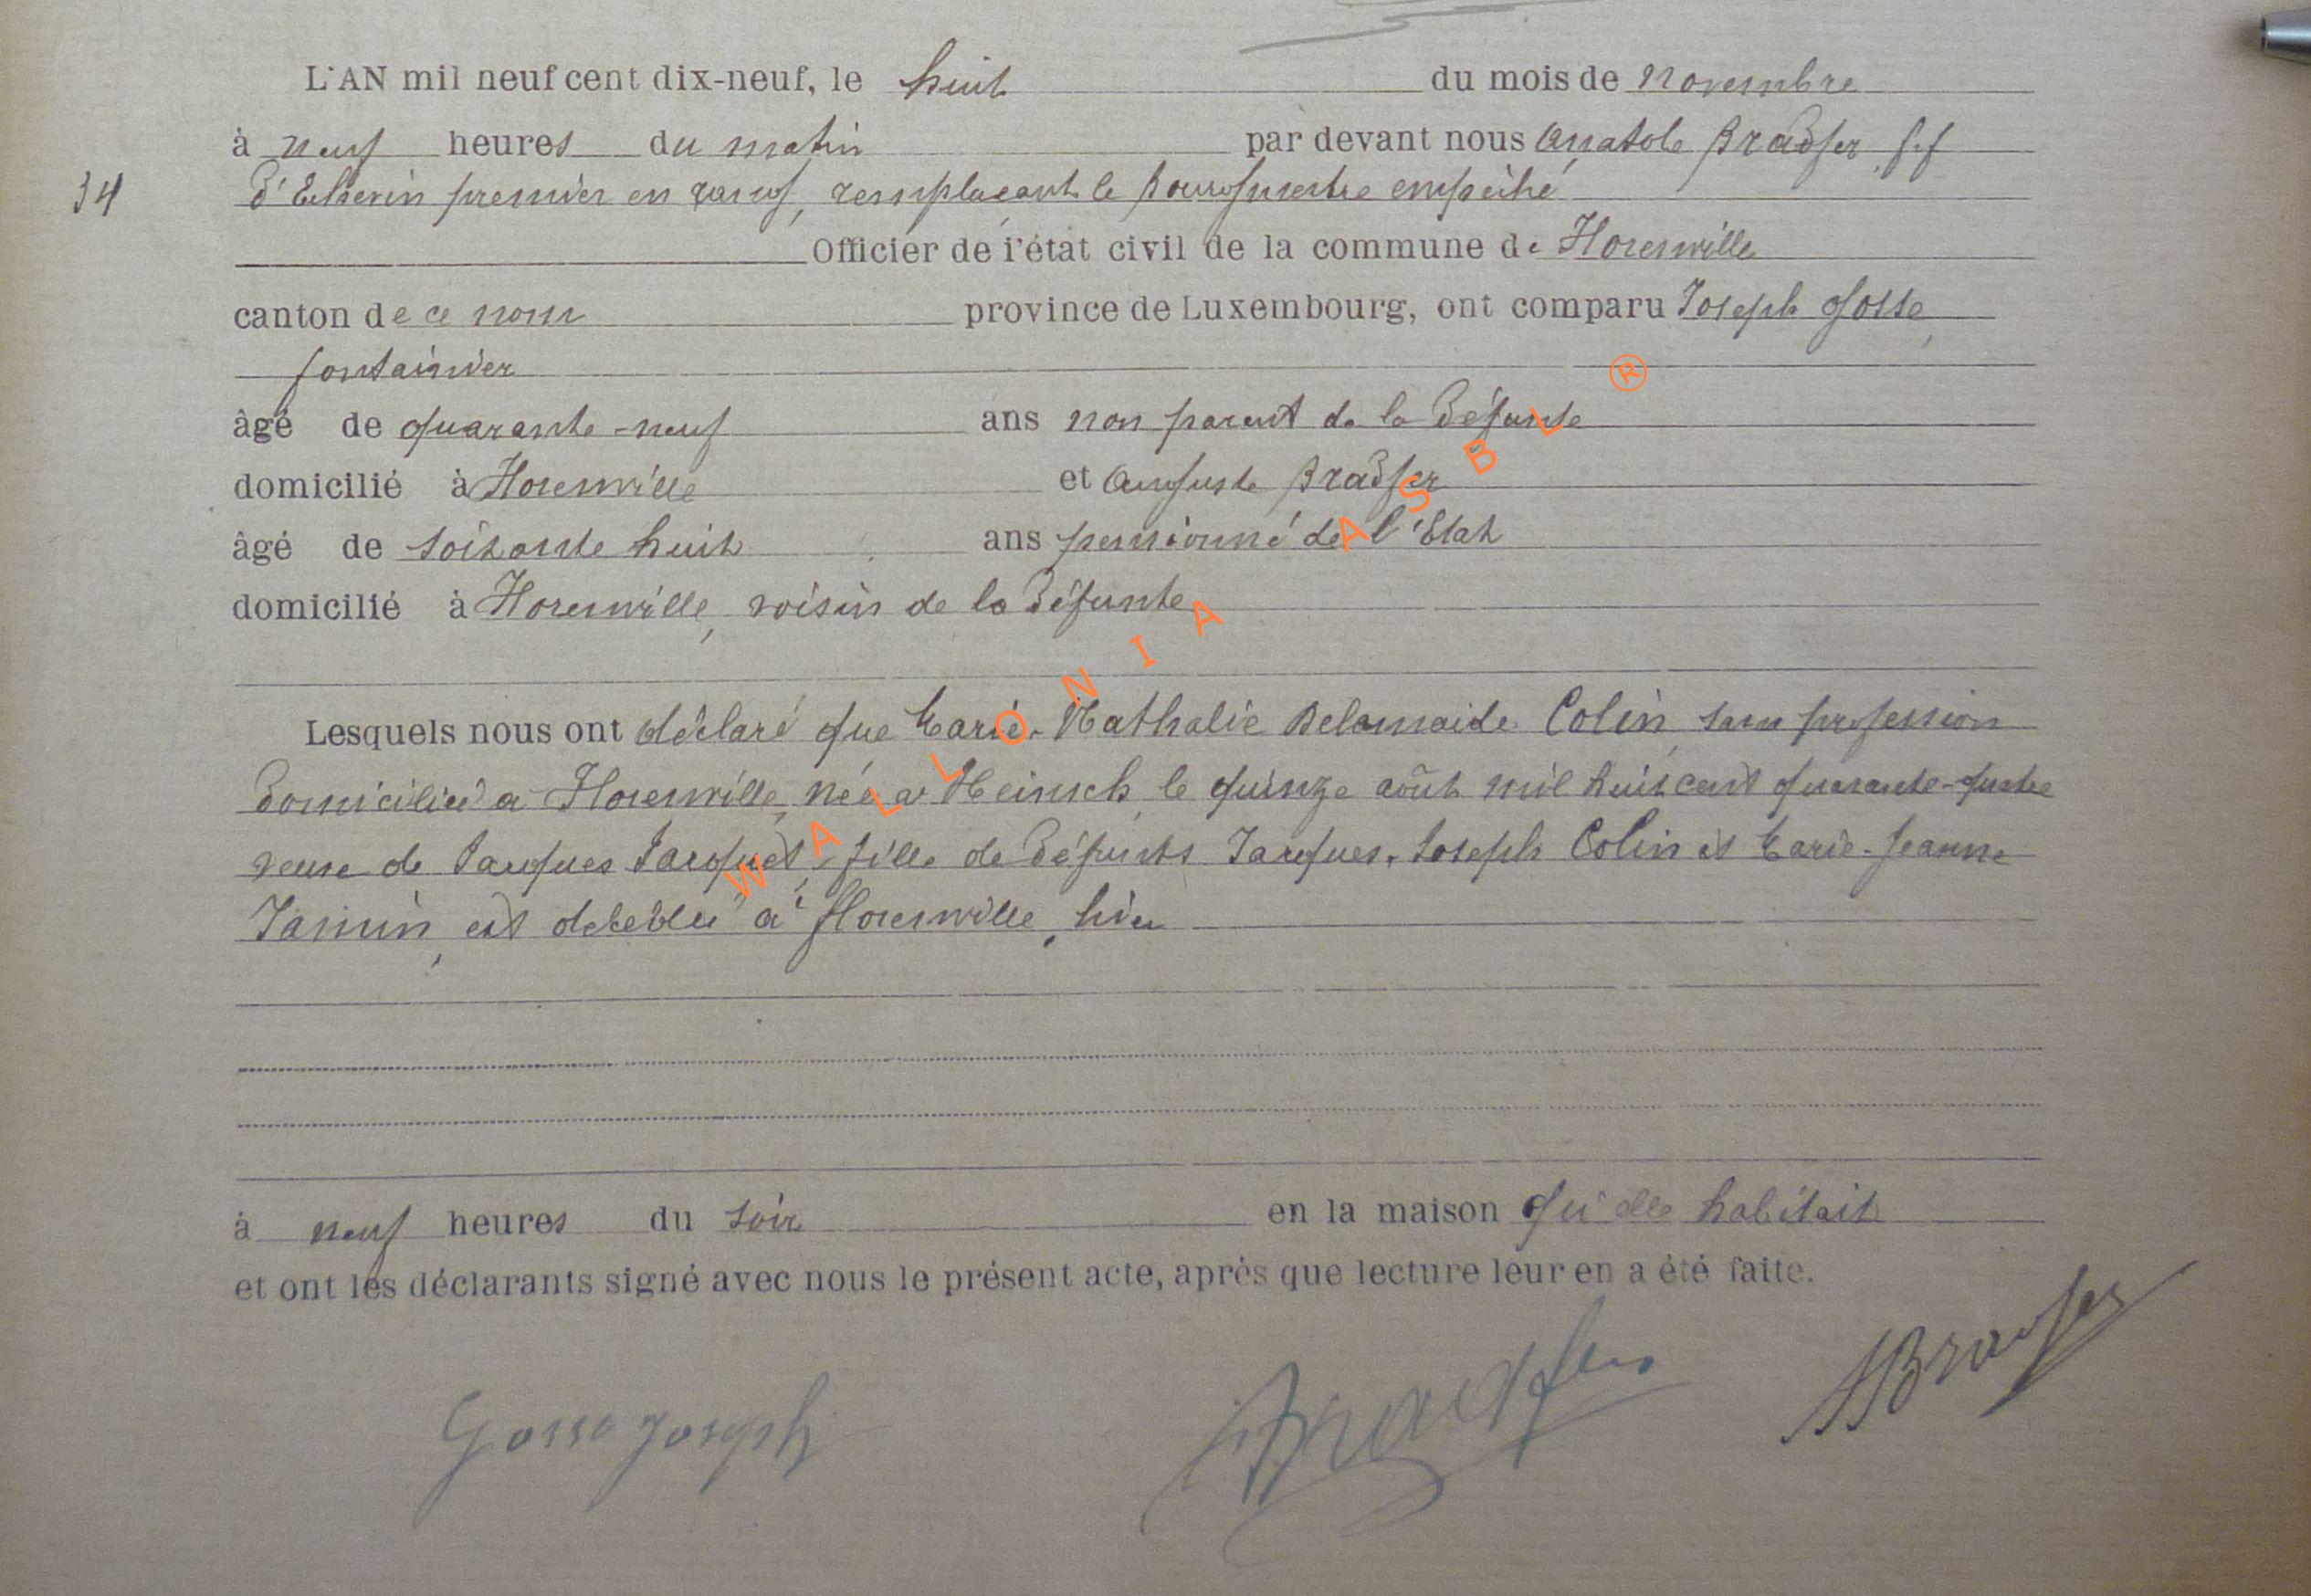 L'AN mil neuf cent dix-neuf, le huit du mois de novembre
à neuf heures du matin par devant nous Anatole Bradfer f.f
34 d'Echevin premier en rang, remplaçant le Bourgmestre empêché
Officier de l'état civil de la commune de Florenville
canton de ce nom province de Luxembourg, ont comparu Joseph Gosse,
fontainier
âgé de quarante-neuf ans non parent de la défunte
domicilié à Florenville et Auguste Bradfer
âgé de soixante huit ans pensionné de l'Etat
domicilié à Florenville, voisin de la défunte
Lesquels nous ont déclaré que Marie-Nathalie Colin, sans profession
domiciliée à Florenville, née à Heinsch, le quinze août mil huit cent quarante-quatre
veuve de Jacques Jacquet, fille de défunts Jacques-Joseph Colin et Marie-Jeanne
Jamin, est décédée à Florenville, hier
à neuf heures du soir en la maison qu'elle habitait
et ont les déclarants signé avec nous le présent acte, après que lecture leur en a été faite.
Gosse Joseph Bradfer ABradfer
WALLONIA ASBL ®